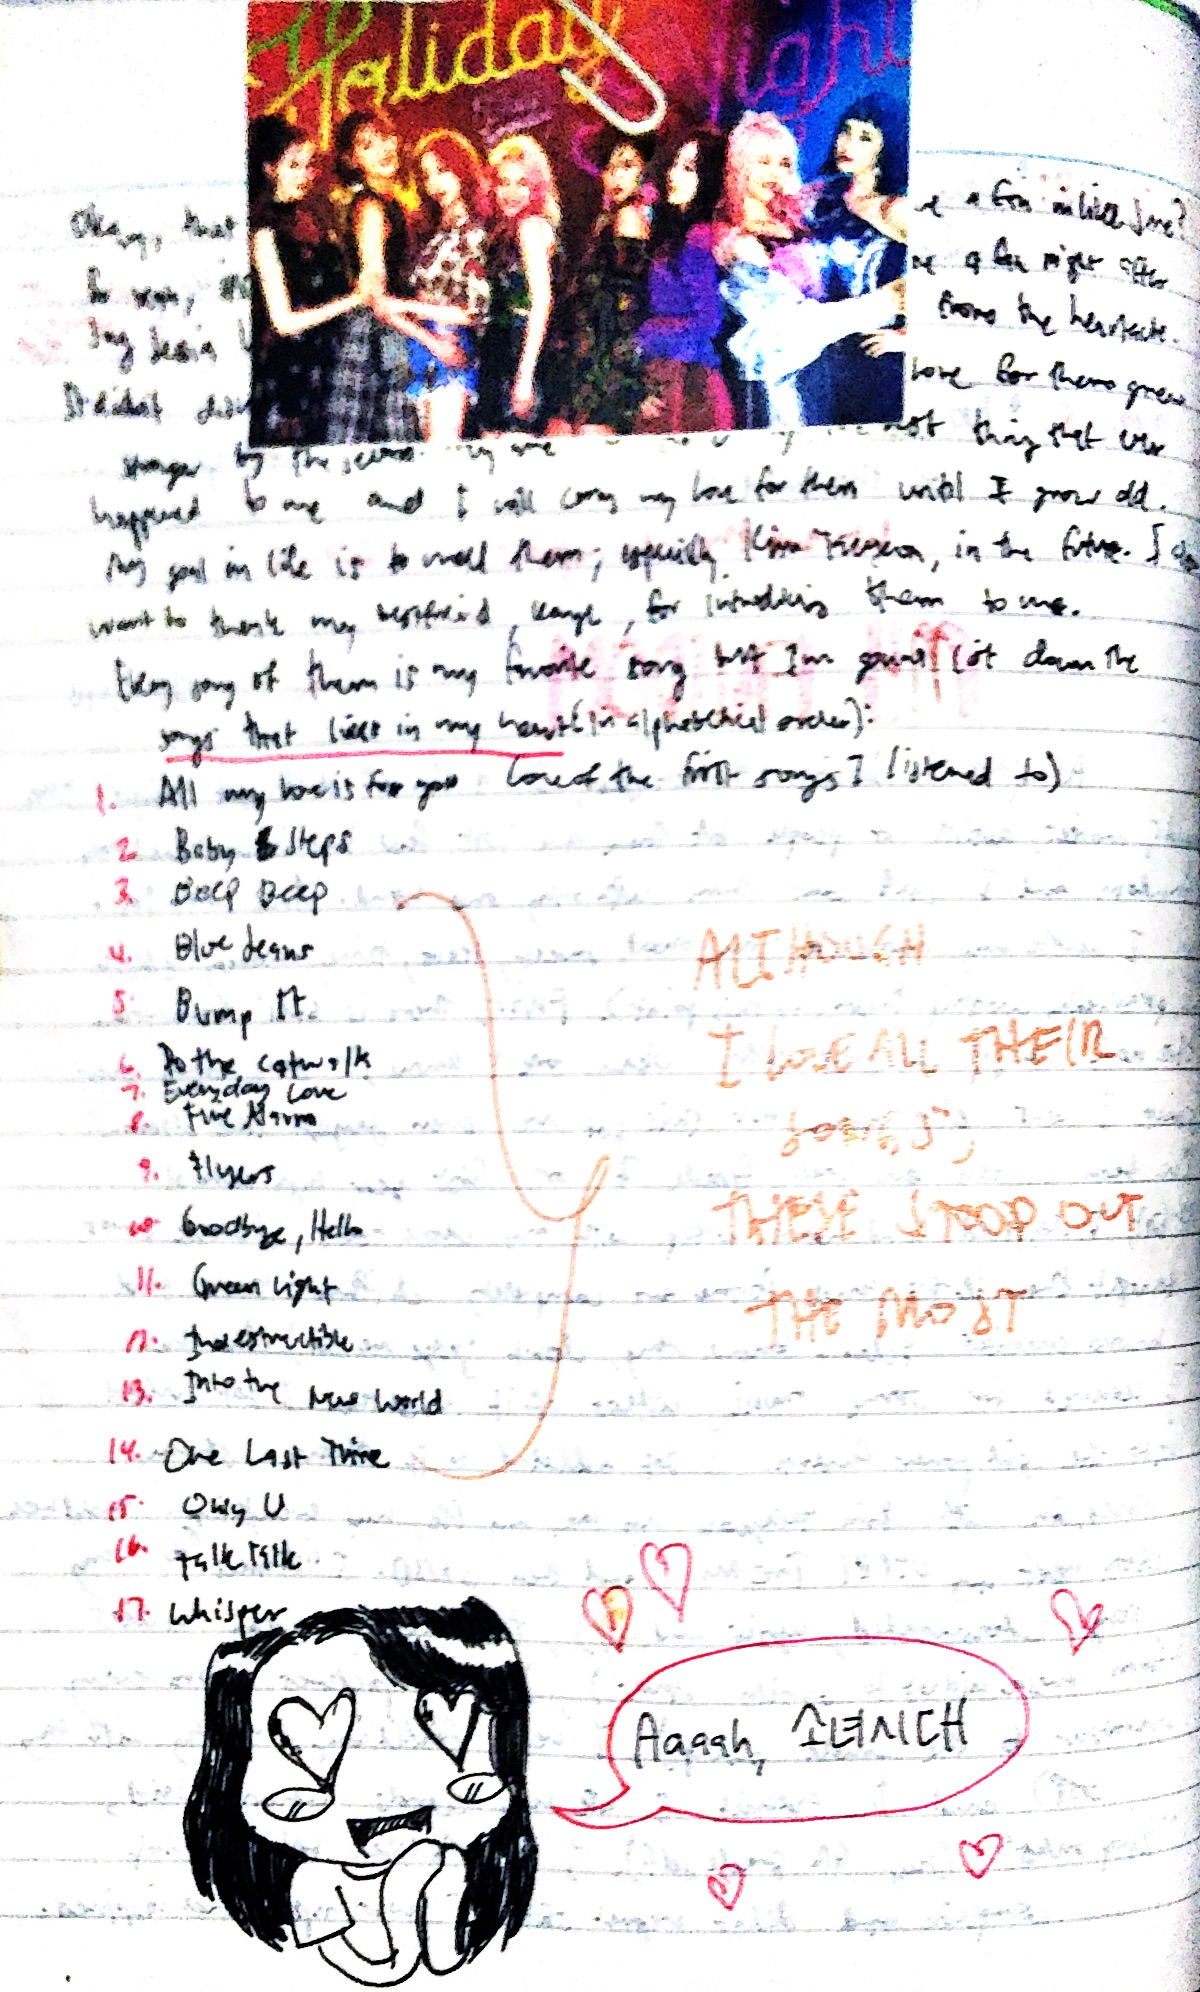 Holiday Night
Okay, that
a fan in like June?
a fan night after
from the
It didnt
love for them grew
by the thing that ever
happened to me and I will carry my love for them until I grow old.
My goal in life is to meet them, especially Kim Taeyeon, in the future. I
want to thank my for them to me.
song of them is my favorite song but I'm gonna list down the
songs that lives in my heart (in order):
1. All my love is for you (one of the first songs I listened to)
2. Baby Steps
3. Beep Beep
4. Blue Jeans
5. Bump It
6. Do the catwalk
7. Everyday Love
8. Fire Alarm
9. Flyers
10. Goodbye, Hello
11. Green Light
12. Indestructible
13. Into the New World
14. One Last Time
15. Only U
16. Talk Talk
17. Whisper
ALTHOUGH
I LOVE ALL THEIR
SONGS,
THESE STOOD OUT
THE MOST
Aaaah,